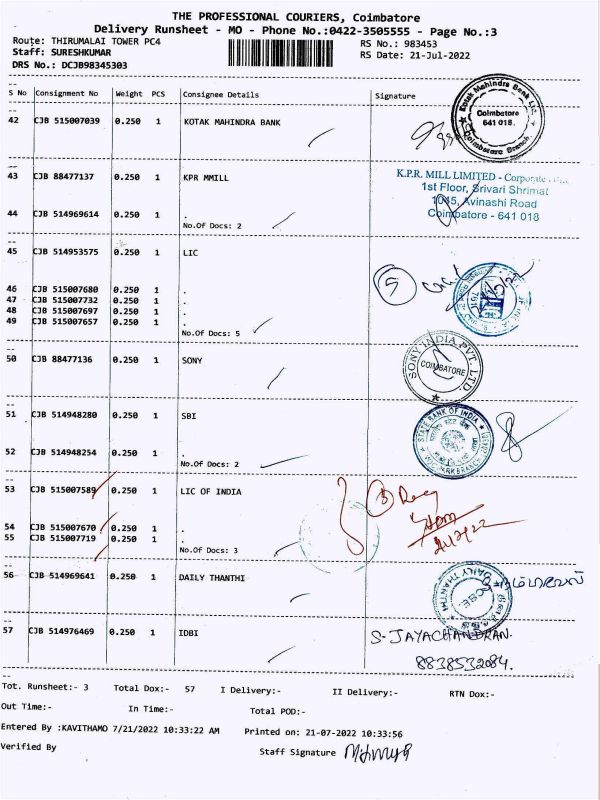 THE PROFESSIONAL COURIERS, Coimbatore
Delivery Runsheet - MO - Phone No.:0422-3505555 - Page No.:3
Route: THIRUMALAI TOWER PC4 RS No.: 983453
Staff: SURESHKUMAR RS Date: 21-Jul-2022
DRS No.: DCJB98345303
S No Consignment No Weight PCS Consignee Details Signature
42 CJB 515007039 0.250 1 KOTAK MAHINDRA BANK
Kotak Mahindra Bank Ltd.
Coimbatore
641 018.
Coimbatore Branch
43 CJB 88477137 0.250 1 KPR MMILL
K.P.R. MILL LIMITED - Corporate
1st Floor, Srivari Shrimat
1045, Avinashi Road
Coimbatore - 641 018
44 CJB 514969614 0.250 1 .
No.Of Docs: 2
45 CJB 514953575 0.250 1 LIC
46 CJB 515007680 0.250 1 .
47 CJB 515007732 0.250 1 .
48 CJB 515007697 0.250 1 .
49 CJB 515007657 0.250 1 .
No.Of Docs: 5
5
50 CJB 88477136 0.250 1 SONY
SONY INDIA PVT. LTD.
COIMBATORE
51 CJB 514948280 0.250 1 SBI
STATE BANK OF INDIA
52 CJB 514948254 0.250 1 .
No.Of Docs: 2
53 CJB 515007589 0.250 1 LIC OF INDIA
3
54 CJB 515007670 0.250 1 .
55 CJB 515007719 0.250 1 .
No.Of Docs: 3
21/7/22
56 CJB 514969641 0.250 1 DAILY THANTHI
DAILY THANTHI
CBE.
57 CJB 514976469 0.250 1 IDBI
S-JAYACHANDRAN.
8838532084.
Tot. Runsheet:- 3 Total Dox:- 57 I Delivery:- II Delivery:- RTN Dox:-
Out Time:- In Time:- Total POD:-
Entered By :KAVITHAMO 7/21/2022 10:33:22 AM Printed on: 21-07-2022 10:33:56
Verified By Staff Signature